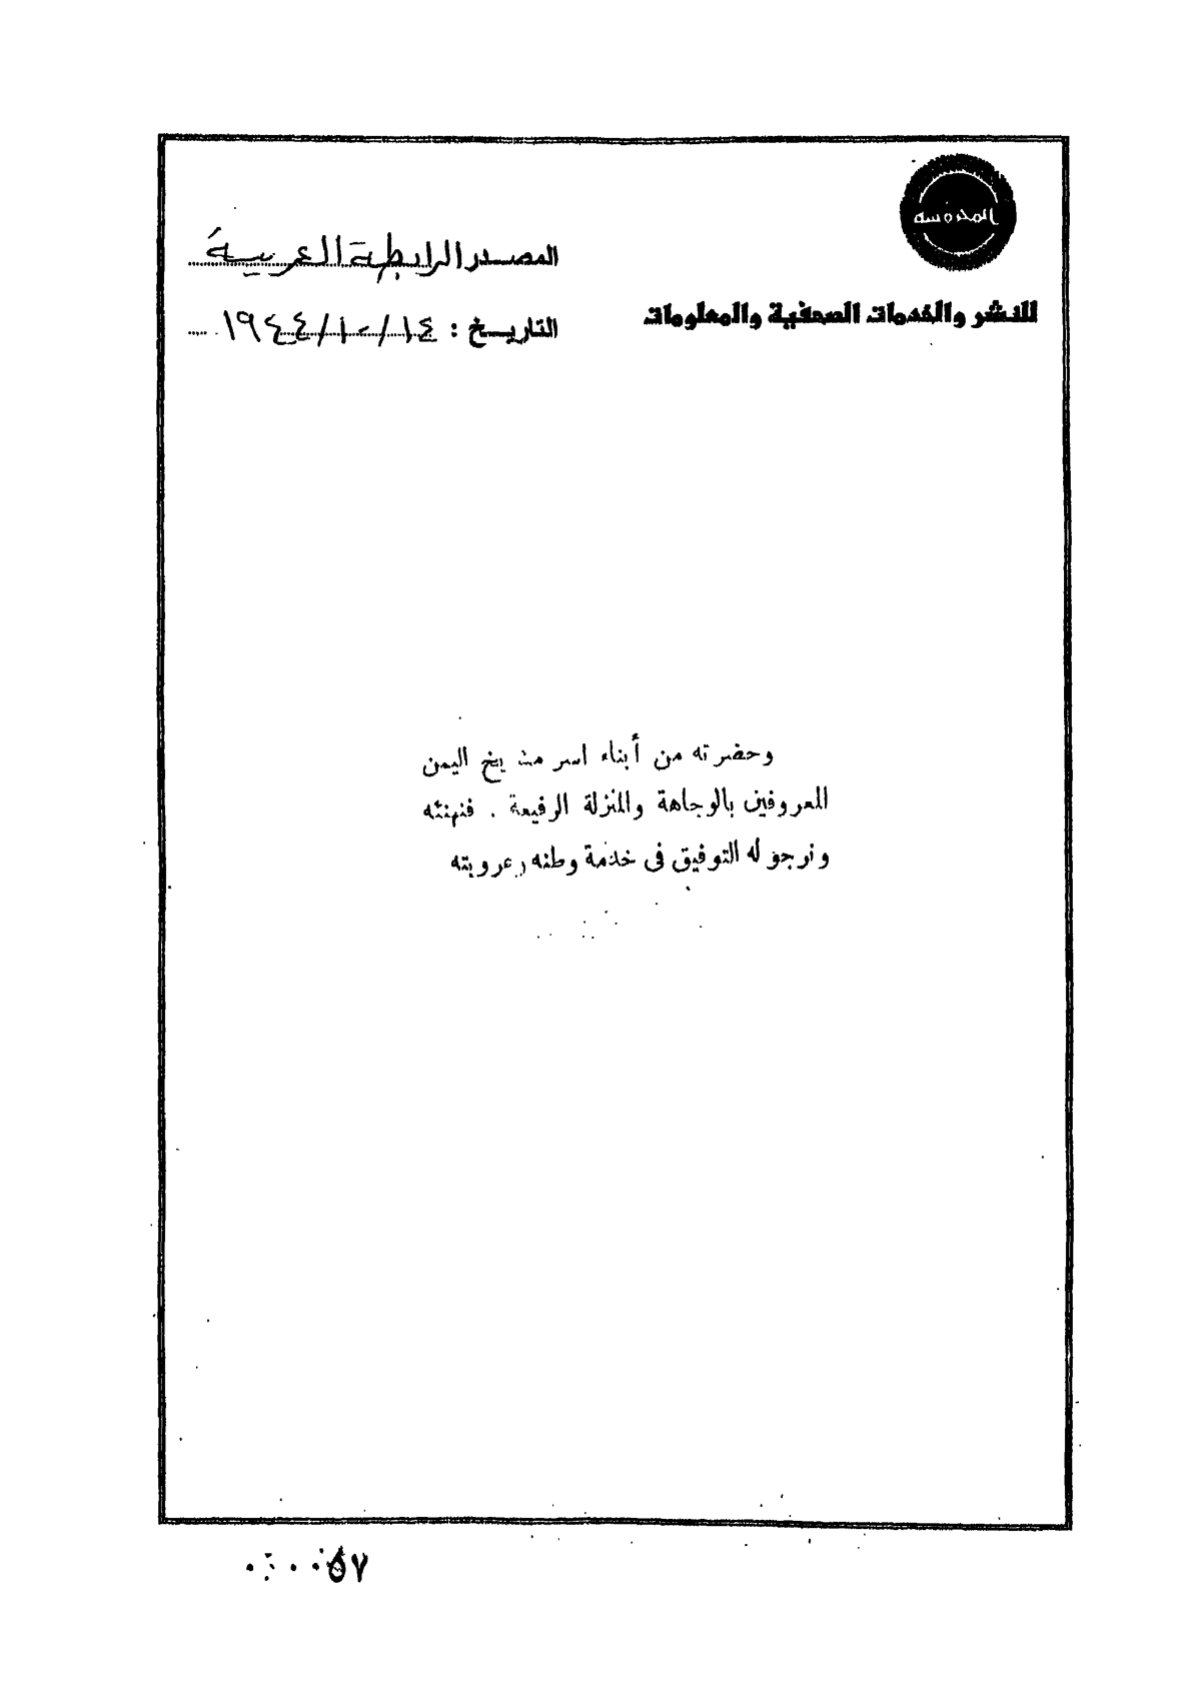 المحروسة
للنشر والخدمات الصحفية والمعلومات
المصدر الرابطة العربية
التاريخ : ١٤/١٠/١٩٤٤
وحضرته من أبناء اسر مشايخ اليمن
المعروفين بالوجاهة والمنزلة الرفيعة . فنهنئه
ونرجو له التوفيق فى خدمة وطنه وعروبته